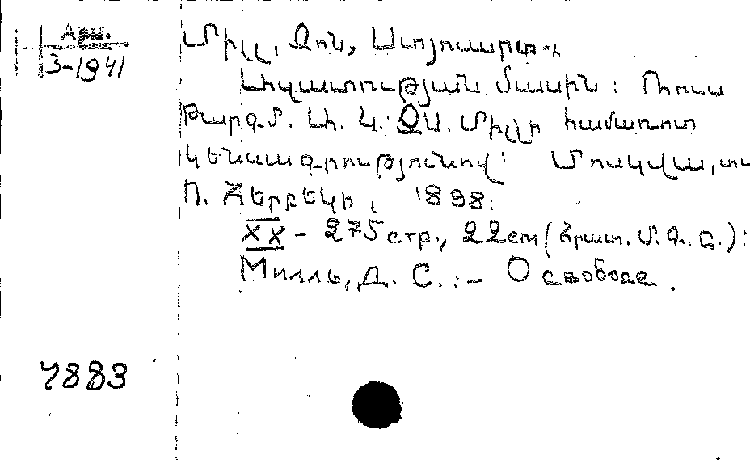 Арм.
3-1941
Միլլ, Ջոն, Ստյուարտ
Ազատության մասին: Ռուս
Թարգմ.
Միլլի համառոտ
կենսագրությունով: Մոսկվա, տպ
Ռ. Հերբեկի, 1898.
XX - 275 стр., 22 см (Հրատ. Մ. Գ. Բ.):
Милль, Д. С. :- О свободе.
7883